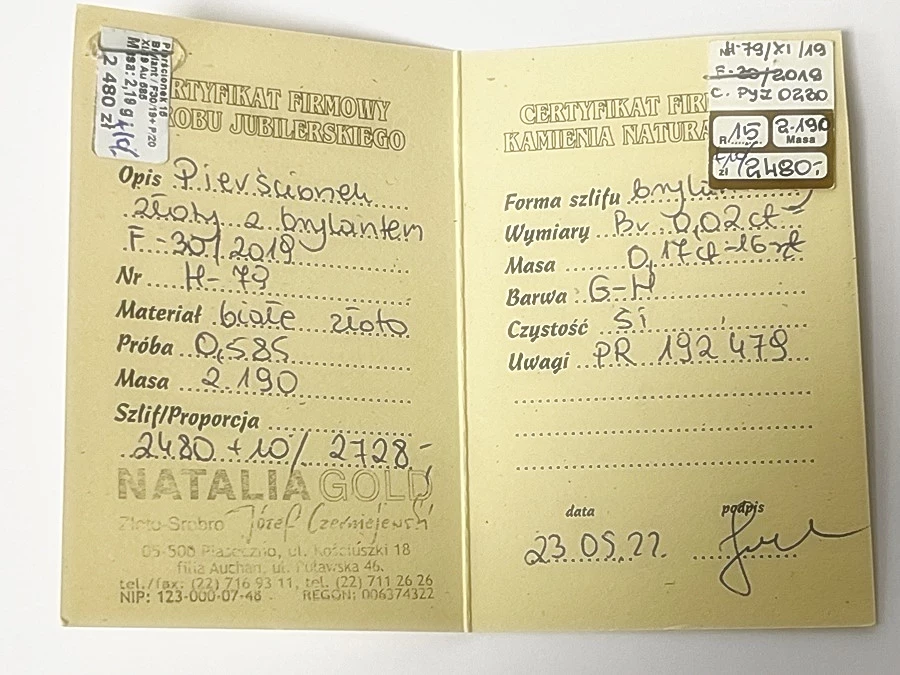 Pierścionek 15
Brylant / F30/19+ P/20
XI/19 Au 585
Masa: 2,19 g
2 480 zł
CERTYFIKAT FIRMOWY
WYROBU JUBILERSKIEGO
Opis Pierścionek
złoty z brylantem
F-30/2019
Nr H-79
Materiał białe złoto
Próba 0,585
Masa 2.190
Szlif/Proporcja
2480 +10/ 2728-
NATALIA GOLD
Złoto-Srebro Józef Czerniejewski
05-500 Piaseczno, ul. Kościuszki 18
filia Auchan, ul. Puławska 46.
tel./fax: (22) 716 93 11, tel. (22) 711 26 26
NIP: 123-000-07-48 REGON: 006374322
H-79/XI/19
F-30/2019
C. PYZ 0230
R 15 2.190
Masa
zł 2480.-
CERTYFIKAT FIR
KAMIENIA NATURA
Forma szlifu brylan
Wymiary Br. 0,02ct-
Masa 0,17ct-16szt
Barwa G-H
Czystość Si
Uwagi PR 192479
data podpis
23.05.22.